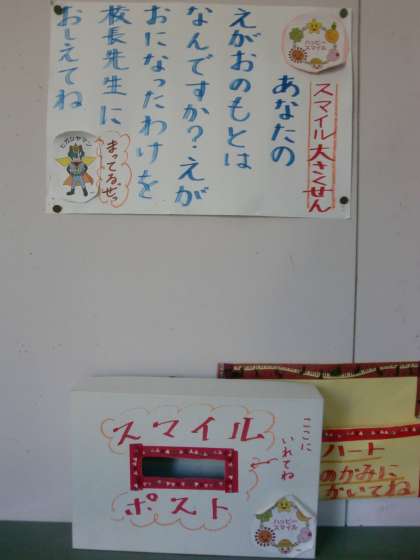 スマイル大さくせん
あなたの
えがおのもとは
なんですか？えが
おになったわけを
校長先生に
おしえてね
ハッピー
スマイル
まってるぜっ
スマイル
ポスト
ここに
いれてね
ハッピー
スマイル
ハート
のかみに
かいてね